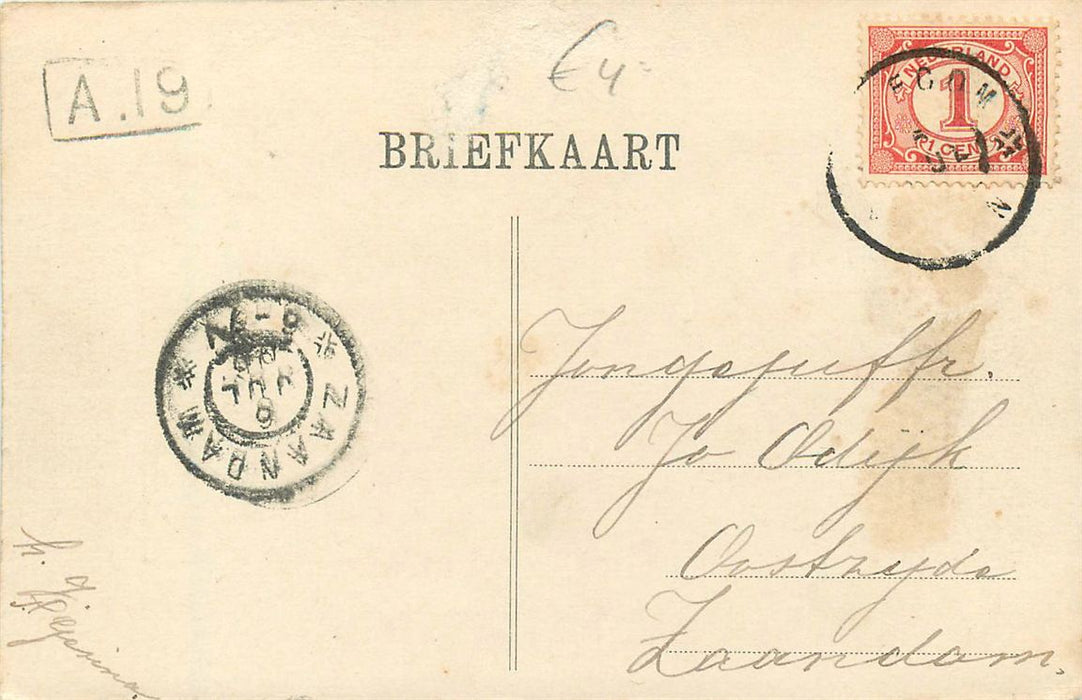 A.19
€ 4-
BRIEFKAART
NEDERLAND
1
1 CENT
ZAANDAM
Jongejuffr.
Jo Odijk
Oostzijde
Zaandam,
h.